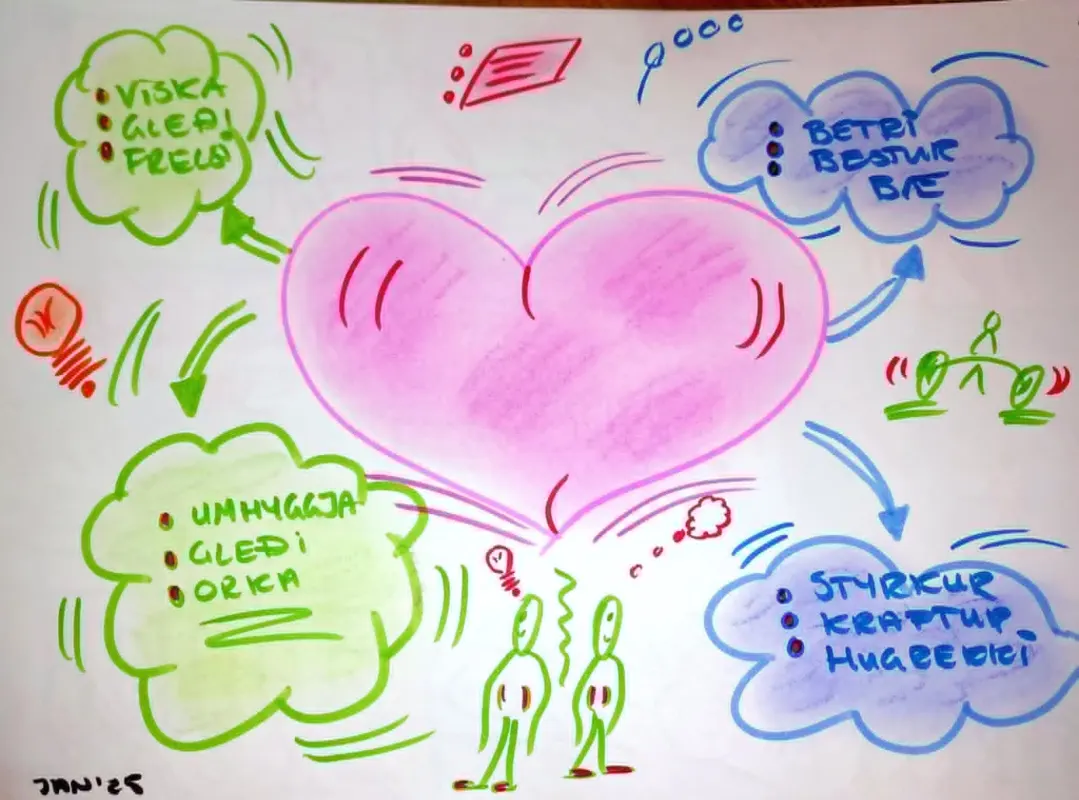 VISKA
GLEÐI
FRELSI
BETRI
BESTUR
BÆ
UMHYGGJA
GLEÐI
ORKA
STYRKUR
KRAFTUR
HUGREKKI
JAN'25